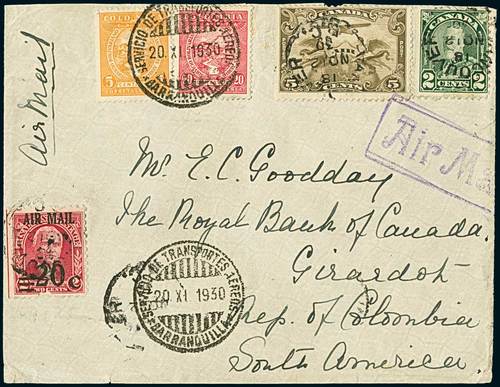 COLOMBIA
5
20
SERVICIO DE TRANSPORTES AEREOS
20 XI 1930
BARRANQUILLA
5
CANADA
5
CENTS
CANADA
2
CENTS
2
Air Mail
Air Ma
Mr. E. C. Goodday
The Royal Bank of Canada
Girardot
Rep. of Colombia
South America.
AIR MAIL
20 c
TWO CENTS
SERVICIO DE TRANSPORTES AEREOS
20 XI 1930
BARRANQUILLA